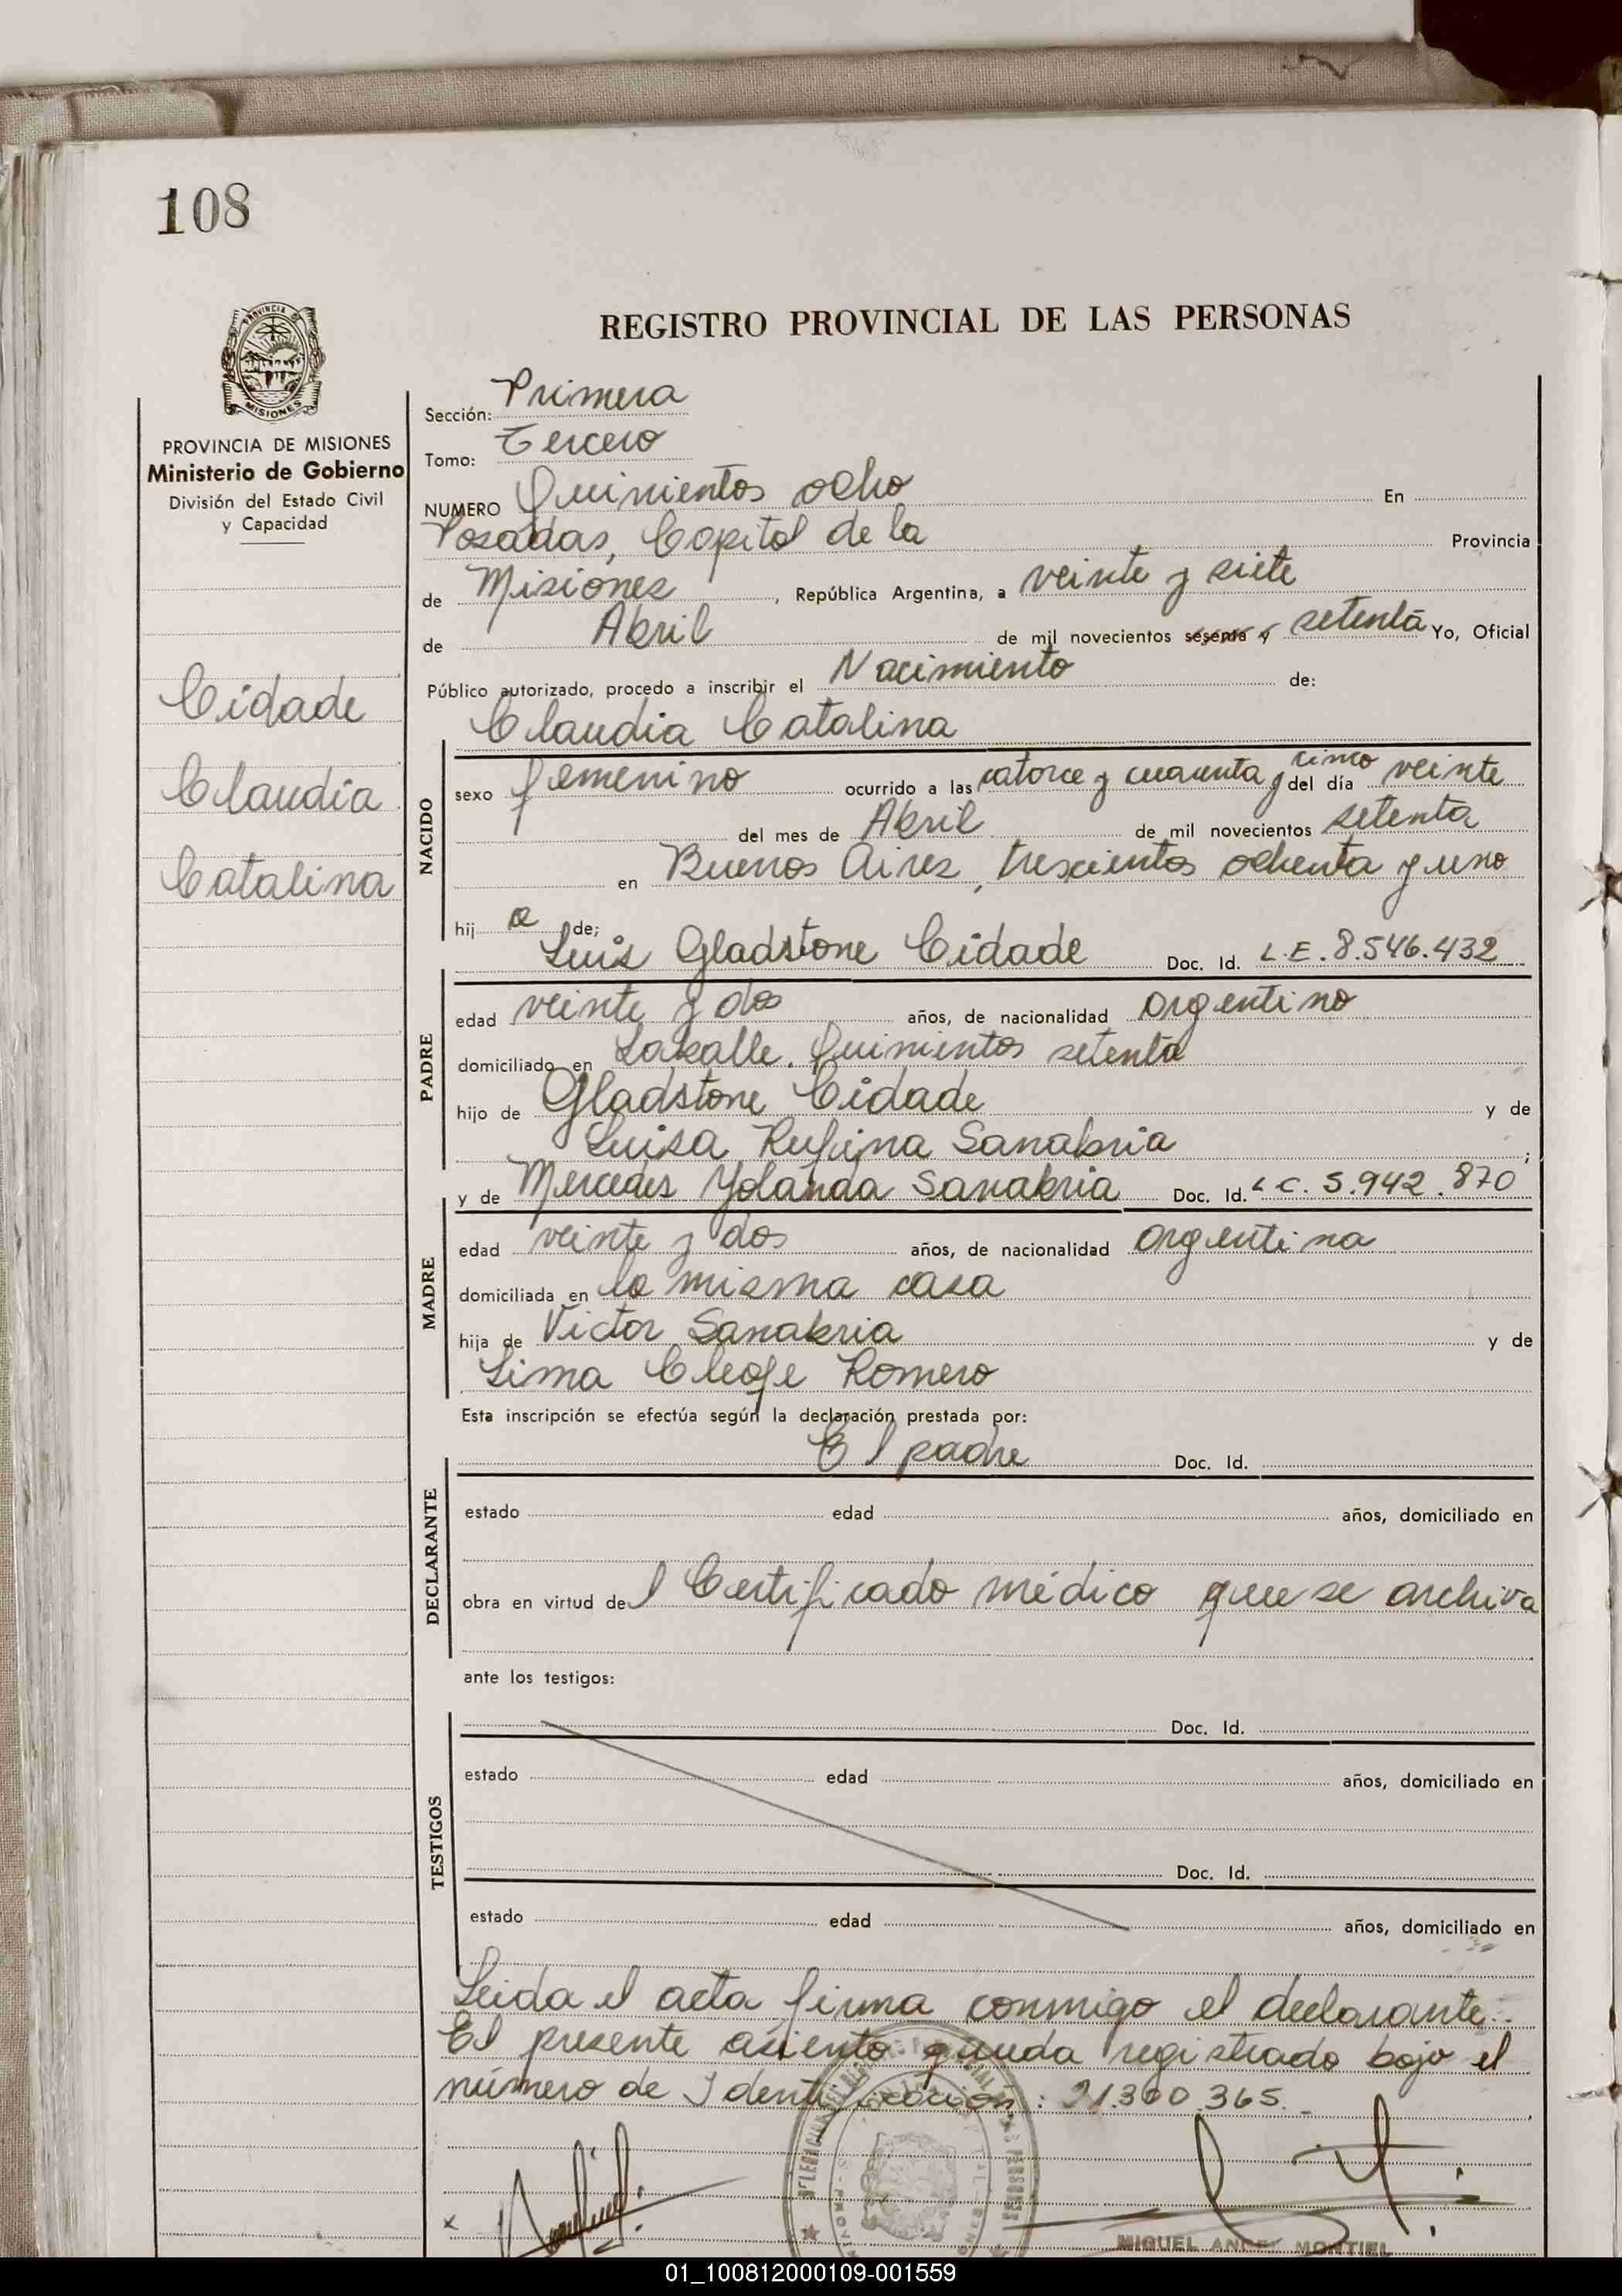 108
REGISTRO PROVINCIAL DE LAS PERSONAS
PROVINCIA DE
MISIONES
PROVINCIA DE MISIONES
Ministerio de Gobierno
División del Estado Civil
y Capacidad
Cidade
Claudia
Catalina
Sección: Primera
Tomo: Tercero
NUMERO Quinientos ocho En
Posadas, Capital de la Provincia
de Misiones, República Argentina, a veinte y siete
de Abril de mil novecientos sesenta y setenta Yo, Oficial
Público autorizado, procedo a inscribir el Nacimiento de:
Claudia Catalina
NACIDO
sexo femenino ocurrido a las catorce y cuarenta y cinco del día veinte
del mes de Abril de mil novecientos setenta
en Buenos Aires, trescientos ochenta y uno
hij a de;
Luis Gladstone Cidade Doc. Id. L.E. 8.546.432
PADRE
edad veinte y dos años, de nacionalidad argentino
domiciliado en Lavalle. Quinientos setenta
hijo de Gladstone Cidade y de
Luisa Rufina Sanabria;
y de Mercedes Yolanda Sanabria Doc. Id. L C. 5.942.870
MADRE
edad veinte y dos años, de nacionalidad argentina
domiciliada en la misma casa
hija de Victor Sanabria y de
Lima Cleofe Romero
Esta inscripción se efectúa según la declaración prestada por:
El padre Doc. Id.
DECLARANTE
estado edad años, domiciliado en
obra en virtud del Certificado médico que se archiva
ante los testigos:
Doc. Id.
TESTIGOS
estado edad años, domiciliado en
Doc. Id.
estado edad años, domiciliado en
Leida el acta firma conmigo el declarante.
El presente asiento queda registrado bajo el
número de Identificación: 21.300.365.
MIGUEL ANGEL MONTIEL
01_100812000109-001559